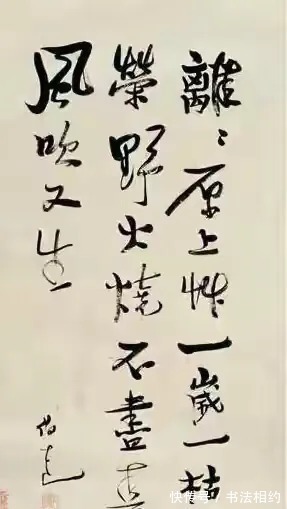 離〻原上艸一歲一枯
榮野火燒不盡春
風吹又生
伯遠
快传号/书法相约